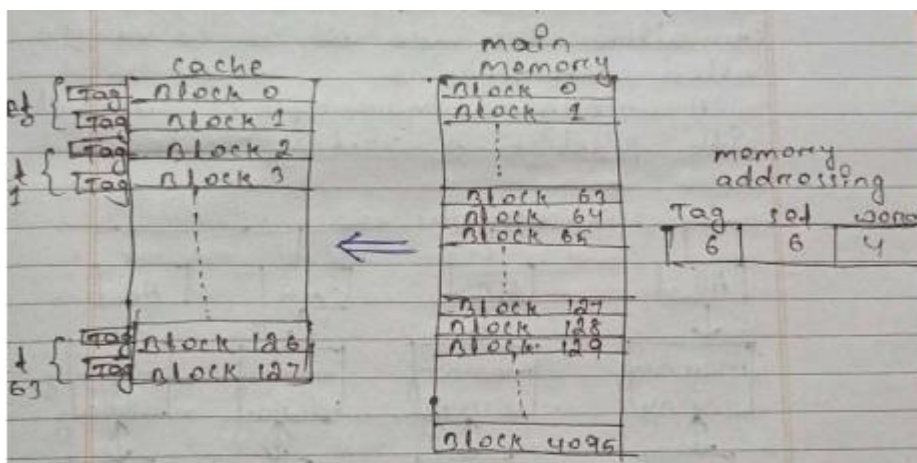 cache
main
memory
Tag Block 0
Tag Block 1
Tag Block 2
Tag Block 3
Tag Block 126
Tag Block 127
63
Block 0
Block 1
Block 63
Block 64
Block 65
Block 127
Block 128
Block 129
Block 4095
memory
addressing
Tag set word
6 6 4